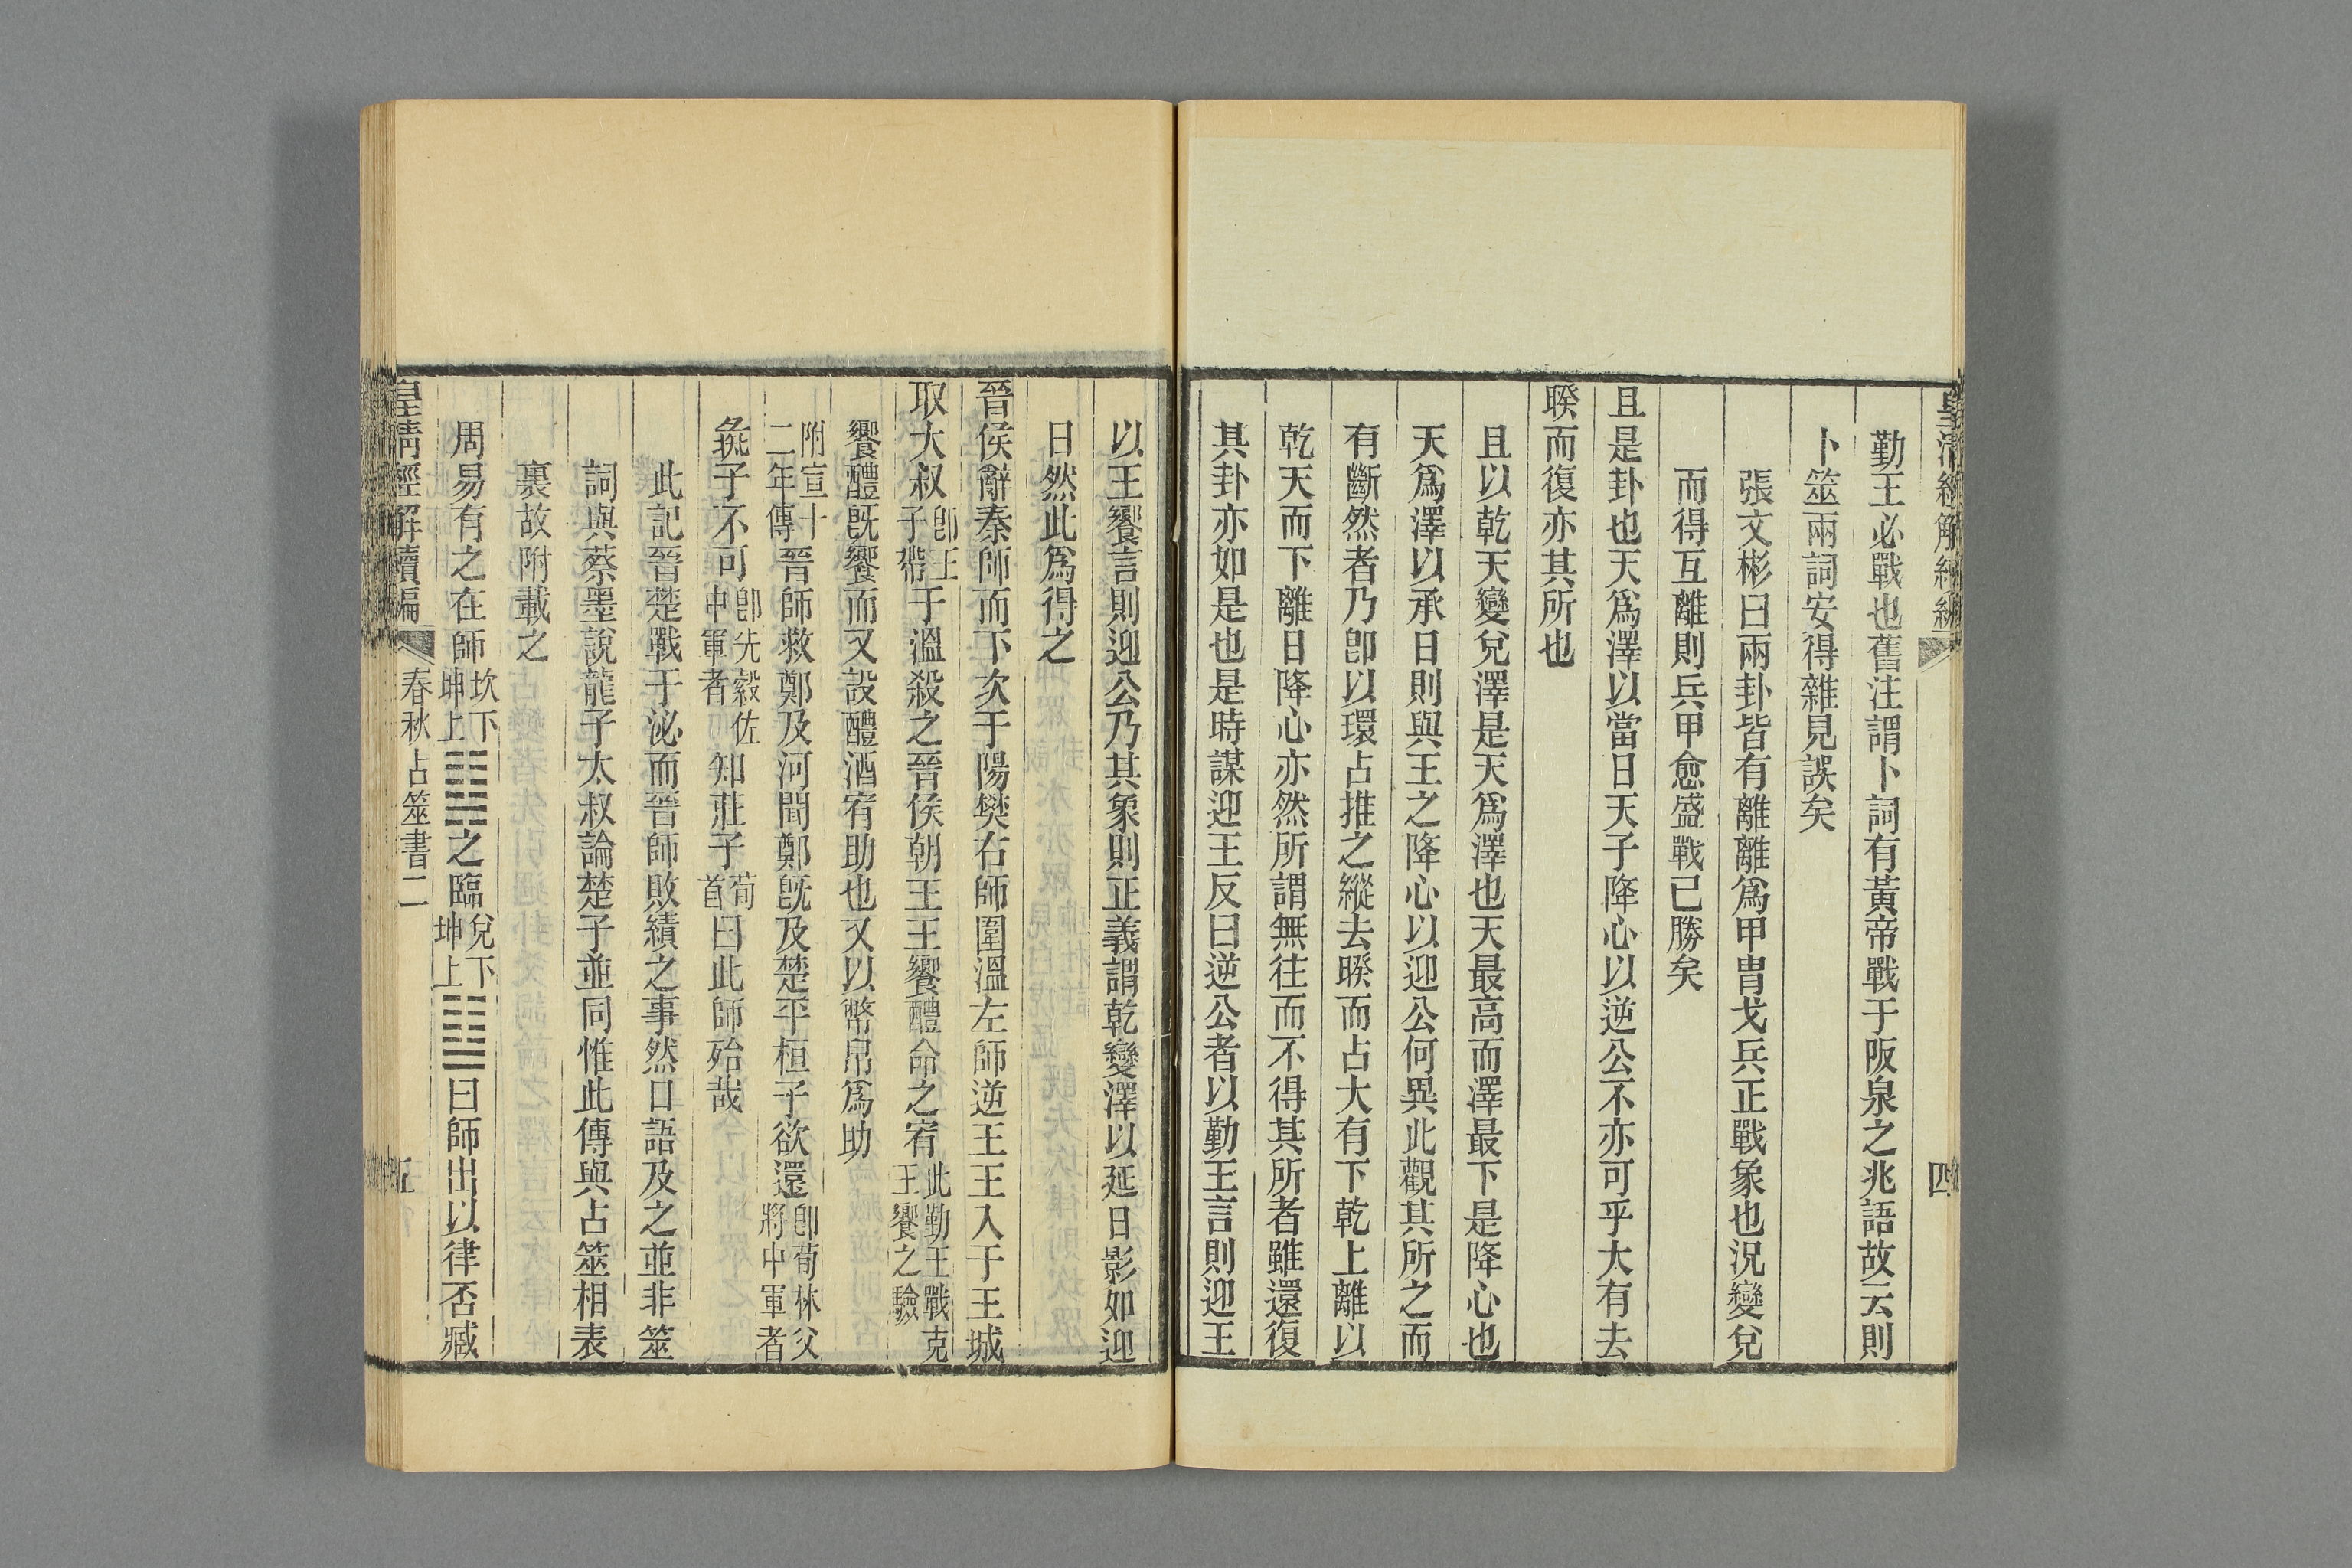 皇清經解續編
四
勤王必戰也舊注謂卜詞有黃帝戰于阪泉之兆語故云則
卜筮兩詞安得雜見誤矣
張文彬曰兩卦皆有離離爲甲冑戈兵正戰象也況變兌
而得互離則兵甲愈盛戰已勝矣
且是卦也天爲澤以當日天子降心以逆公不亦可乎大有去
睽而復亦其所也
且以乾天變兌澤是天爲澤也天最高而澤最下是降心也
天爲澤以承日則與王之降心以迎公何異此觀其所之而
有斷然者乃卽以環占推之縱去睽而占大有下乾上離以
乾天而下離日降心亦然所謂無往而不得其所者雖還復
其卦亦如是也是時謀迎王反曰逆公者以勤王言則迎王
以王饗言則迎公乃其象則正義謂乾變澤以延日影如迎
日然此爲得之
晉侯辭秦師而下次于陽樊右師圍溫左師逆王王入于王城
取大叔卽王子帶于溫殺之晉侯朝王王饗醴命之宥此勤王戰克王饗之驗
饗醴旣饗而又設醴酒宥助也又以幣帛爲助
附宣十二年傳晉師救鄭及河聞鄭旣及楚平桓子欲還卽荀林父將中軍者
彘子不可卽先縠佐中軍者知莊子荀首曰此師殆哉
此記晉楚戰于泌而晉師敗績之事然口語及之並非筮
詞與蔡墨說龍子太叔論楚子並同惟此傳與占筮相表
裏故附載之
周易有之在師坎下坤上䷆之臨兌下坤上䷒曰師出以律否臧
皇清經解續編
春秋占筮書二
五